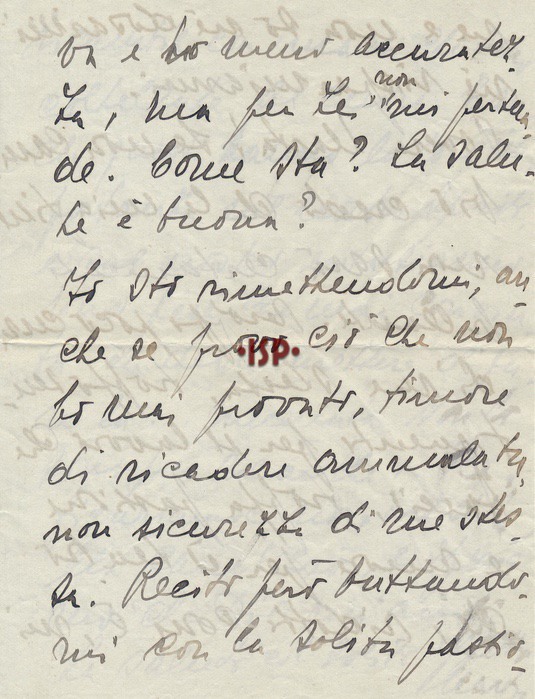 va e ho meno accuratez
za, ma per Lei non mi perten
de. Come sta? La salu-
te è buona?
Io sto rimettendomi, an
che se provo ciò che non
ho mai provato, timore
di ricadere ammalata,
non sicurezza di me stes-
sa. Recito però buttando-
mi con la solita passio-
·ISP·